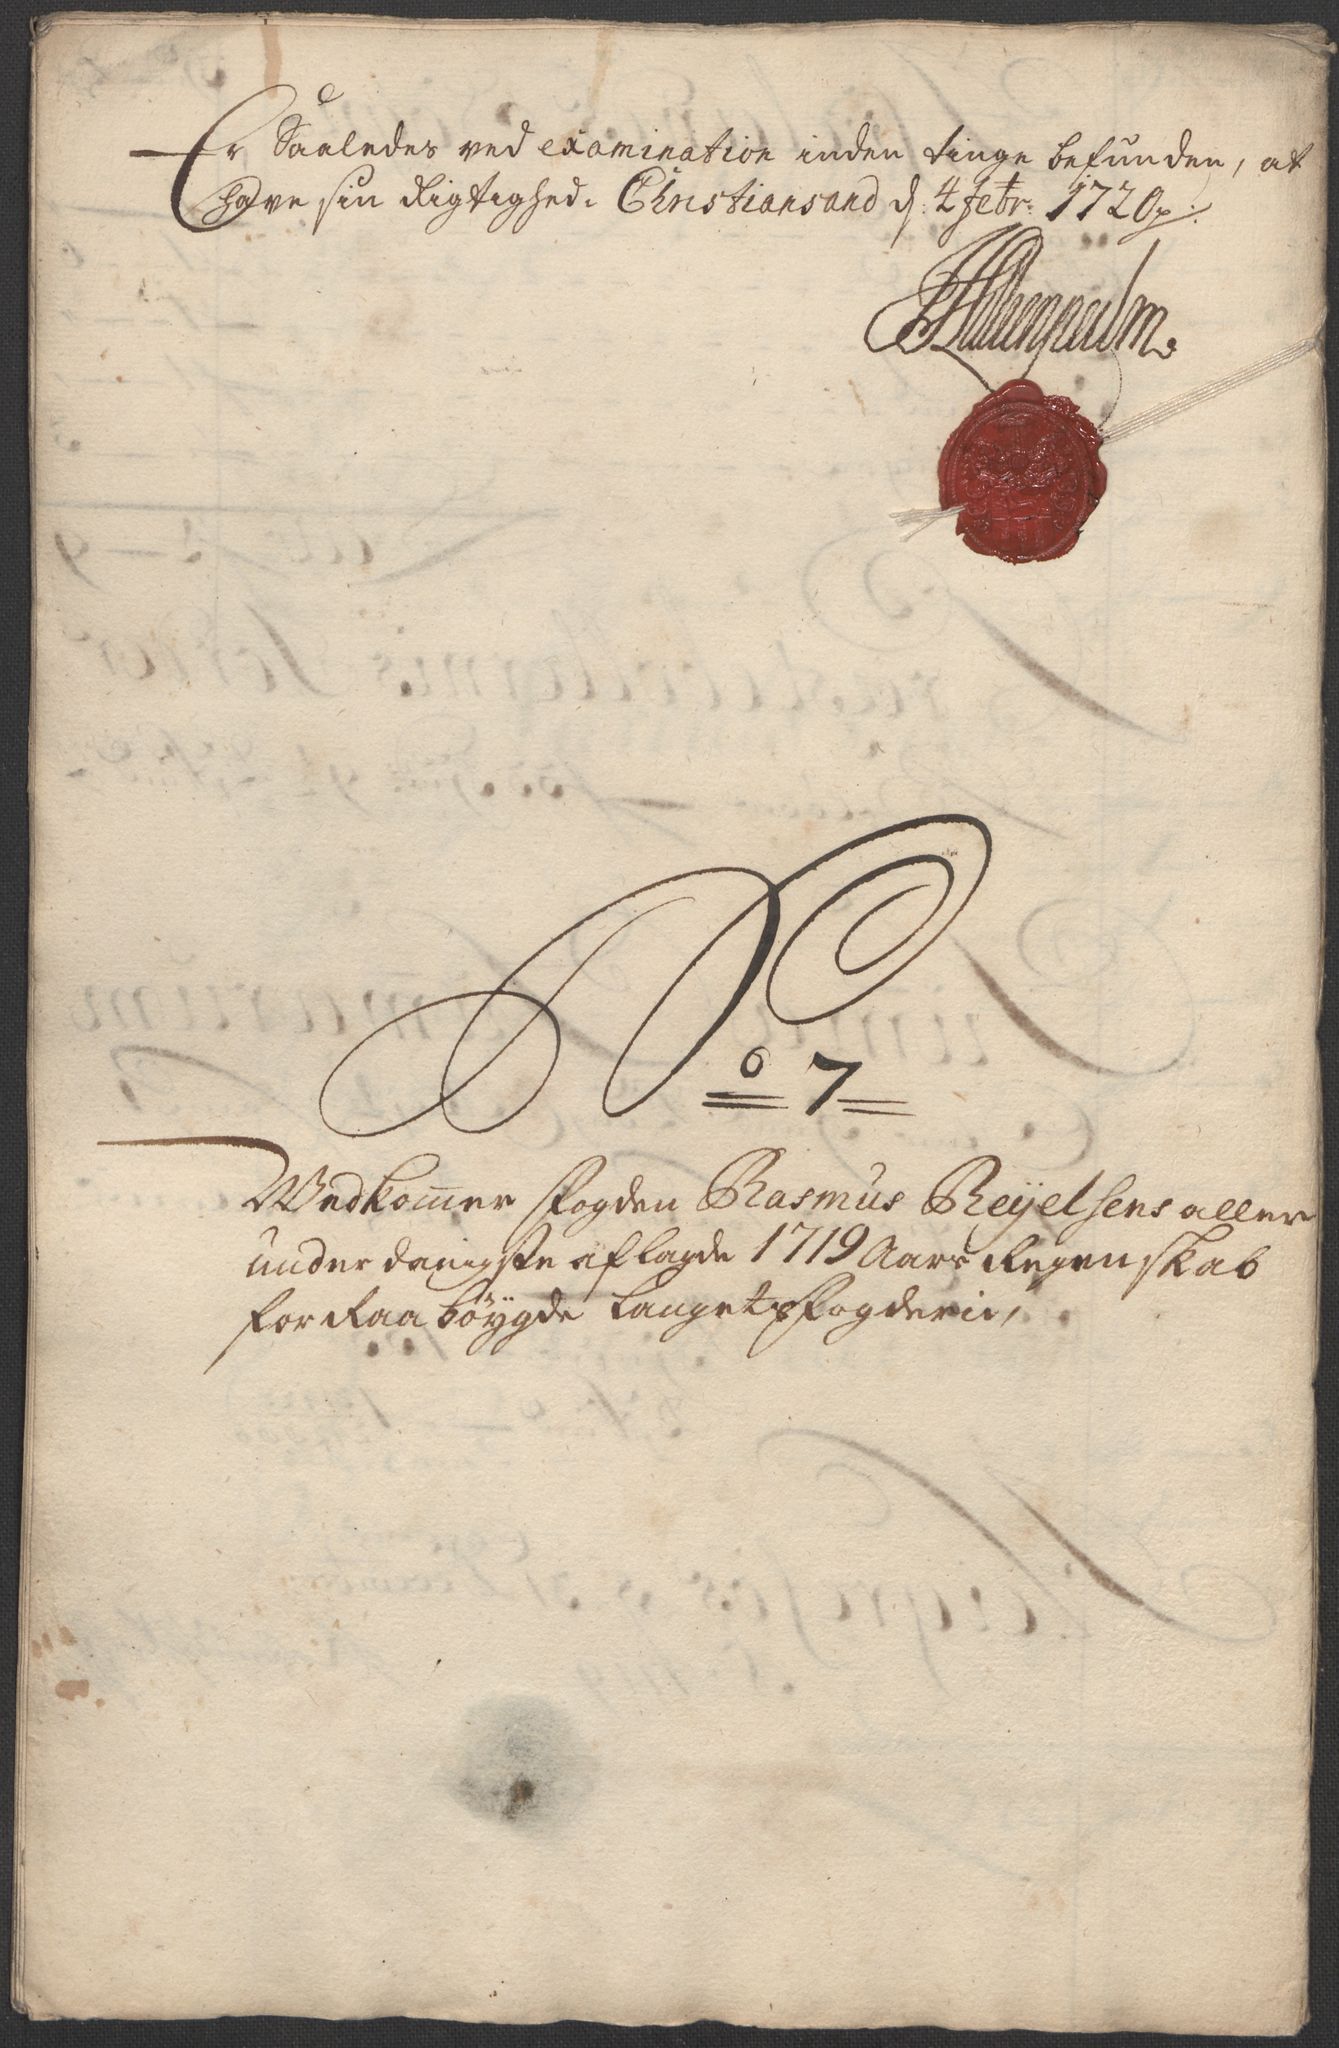 Er Saaledes ved examination inden tinge befunden, at
Have sin Rigtighed. Christiansand d: 4 Febr: 1720
No 7
Vedkom̄er Fogden Rasmus Reyelsens aller
underdanigste aflagde 1719 Aars Regenskab
for Raabøygde Laugets Fogderie,